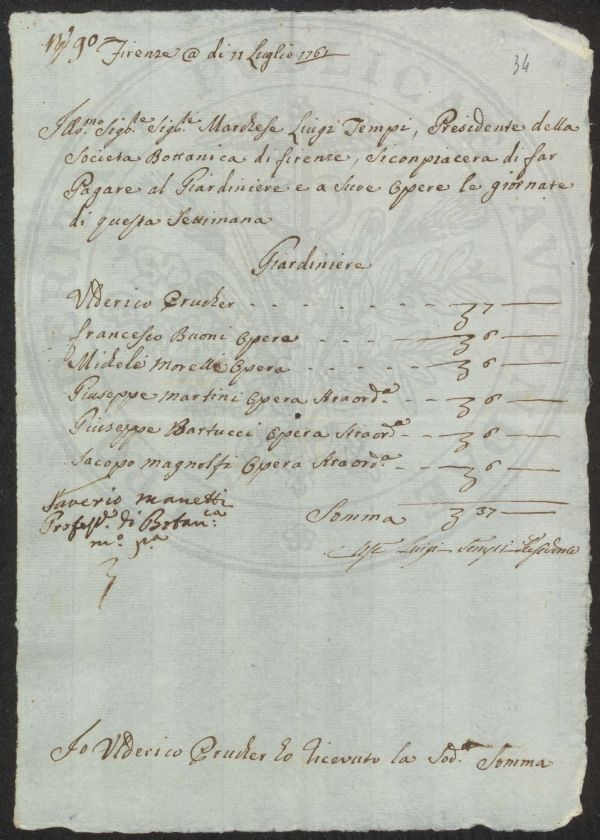 N.º 9º Firenze @ di 11 Luglio 1761
34
Ill.mo Sig.re Sig.re Marchese Luigi Tempi, Presidente della
Societa Bottanica di firenze, si conpiacera di far
Pagare al Giardiniere e a Sue Opere le giornate
di questa Settimana
Giardiniere
Ulderico Prucker - - - - - - 37
francesco Buoni Opera - - - - 36
Michele Morelli Opera - - - - 36
Giuseppe Martini Opera Straord.a - - 36
Giuseppe Bartucci Opera Straord.a - - 36
Jacopo Magnolfi Opera Straord.a - - 36
Saverio Manetti
Profess.e di Botan.ca
m.o p.a
Somma 3 37
Luigi Tempi Presidente
Io Ulderico Prucker ho ricevuto la Sod.a Somma